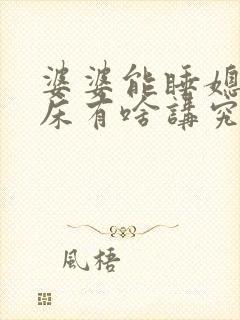 婆婆能睡媳
床有啥講究
風梧